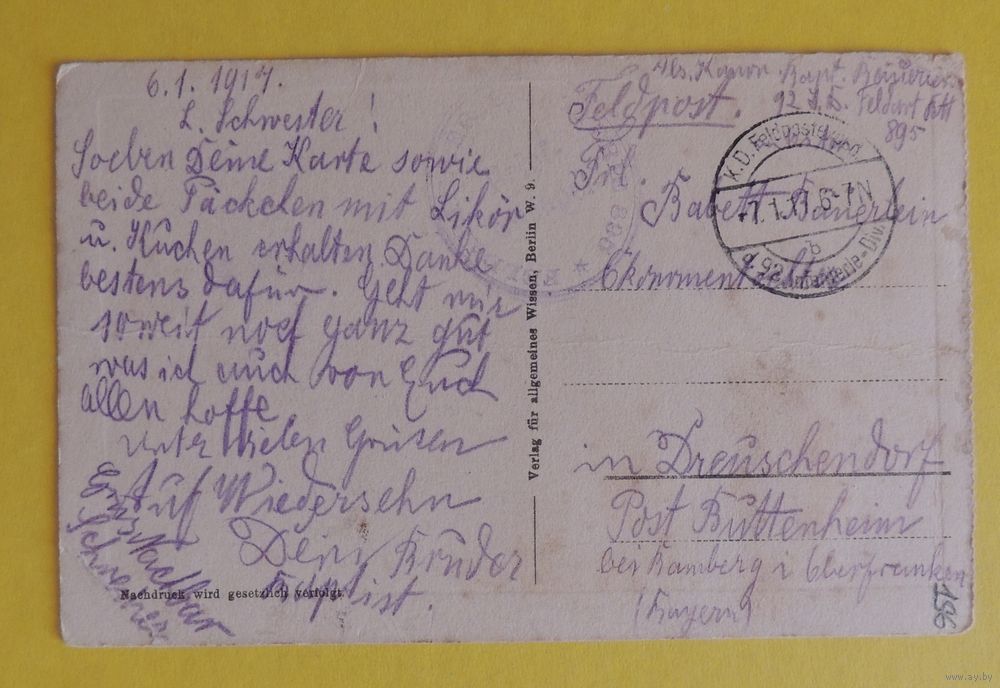 6.1.1917.
L. Schwester!
Soeben Deine Karte sowie
beide Päckchen mit Likör
u. Kuchen erhalten. Danke
bestens dafür. Geht mir
soweit noch ganz gut
was ich auch von Euch
allen hoffe
unter vielen Grüsen
Auf Wiedersehn
Dein Bruder
Baptist.
Nachdruck wird gesetzlich verfolgt.
Verlag für allgemeines Wissen, Berlin W. 9.
Abs. Kanon. Bapt. Beuerlein
92 I.D. Feldart Batt
895
Feldpost.
Frl.
Babett Bäuerlein
Ökonoment
in Dreuschendorf
Post Buttenheim
bei Bamberg i Oberfranken
(Bayern)
K.D. Feldpostexped.
-7.1.17. 6-7N
b
d. 92. Infanterie-Div.
196
www.ay.by